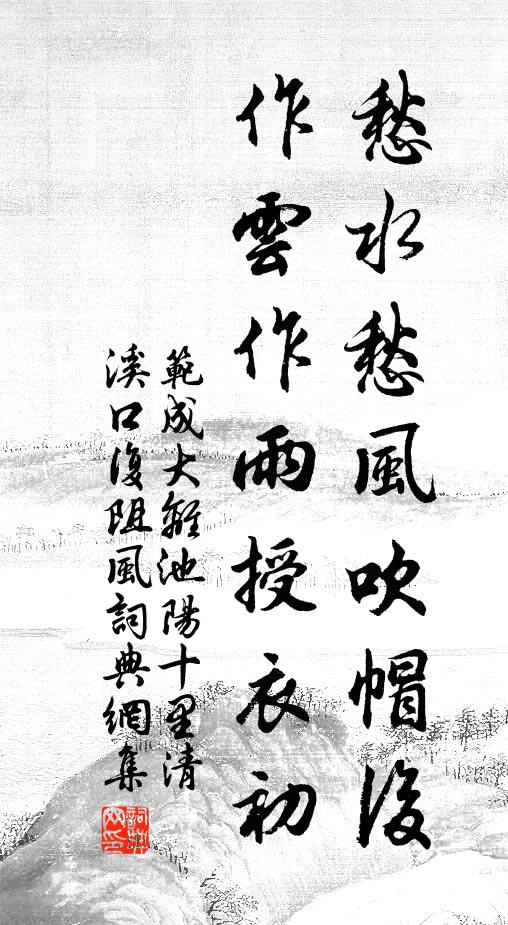 愁水愁風吹帽後
作雲作雨授衣初
範成大離池陽十里清
溪口復阻風詞典網集